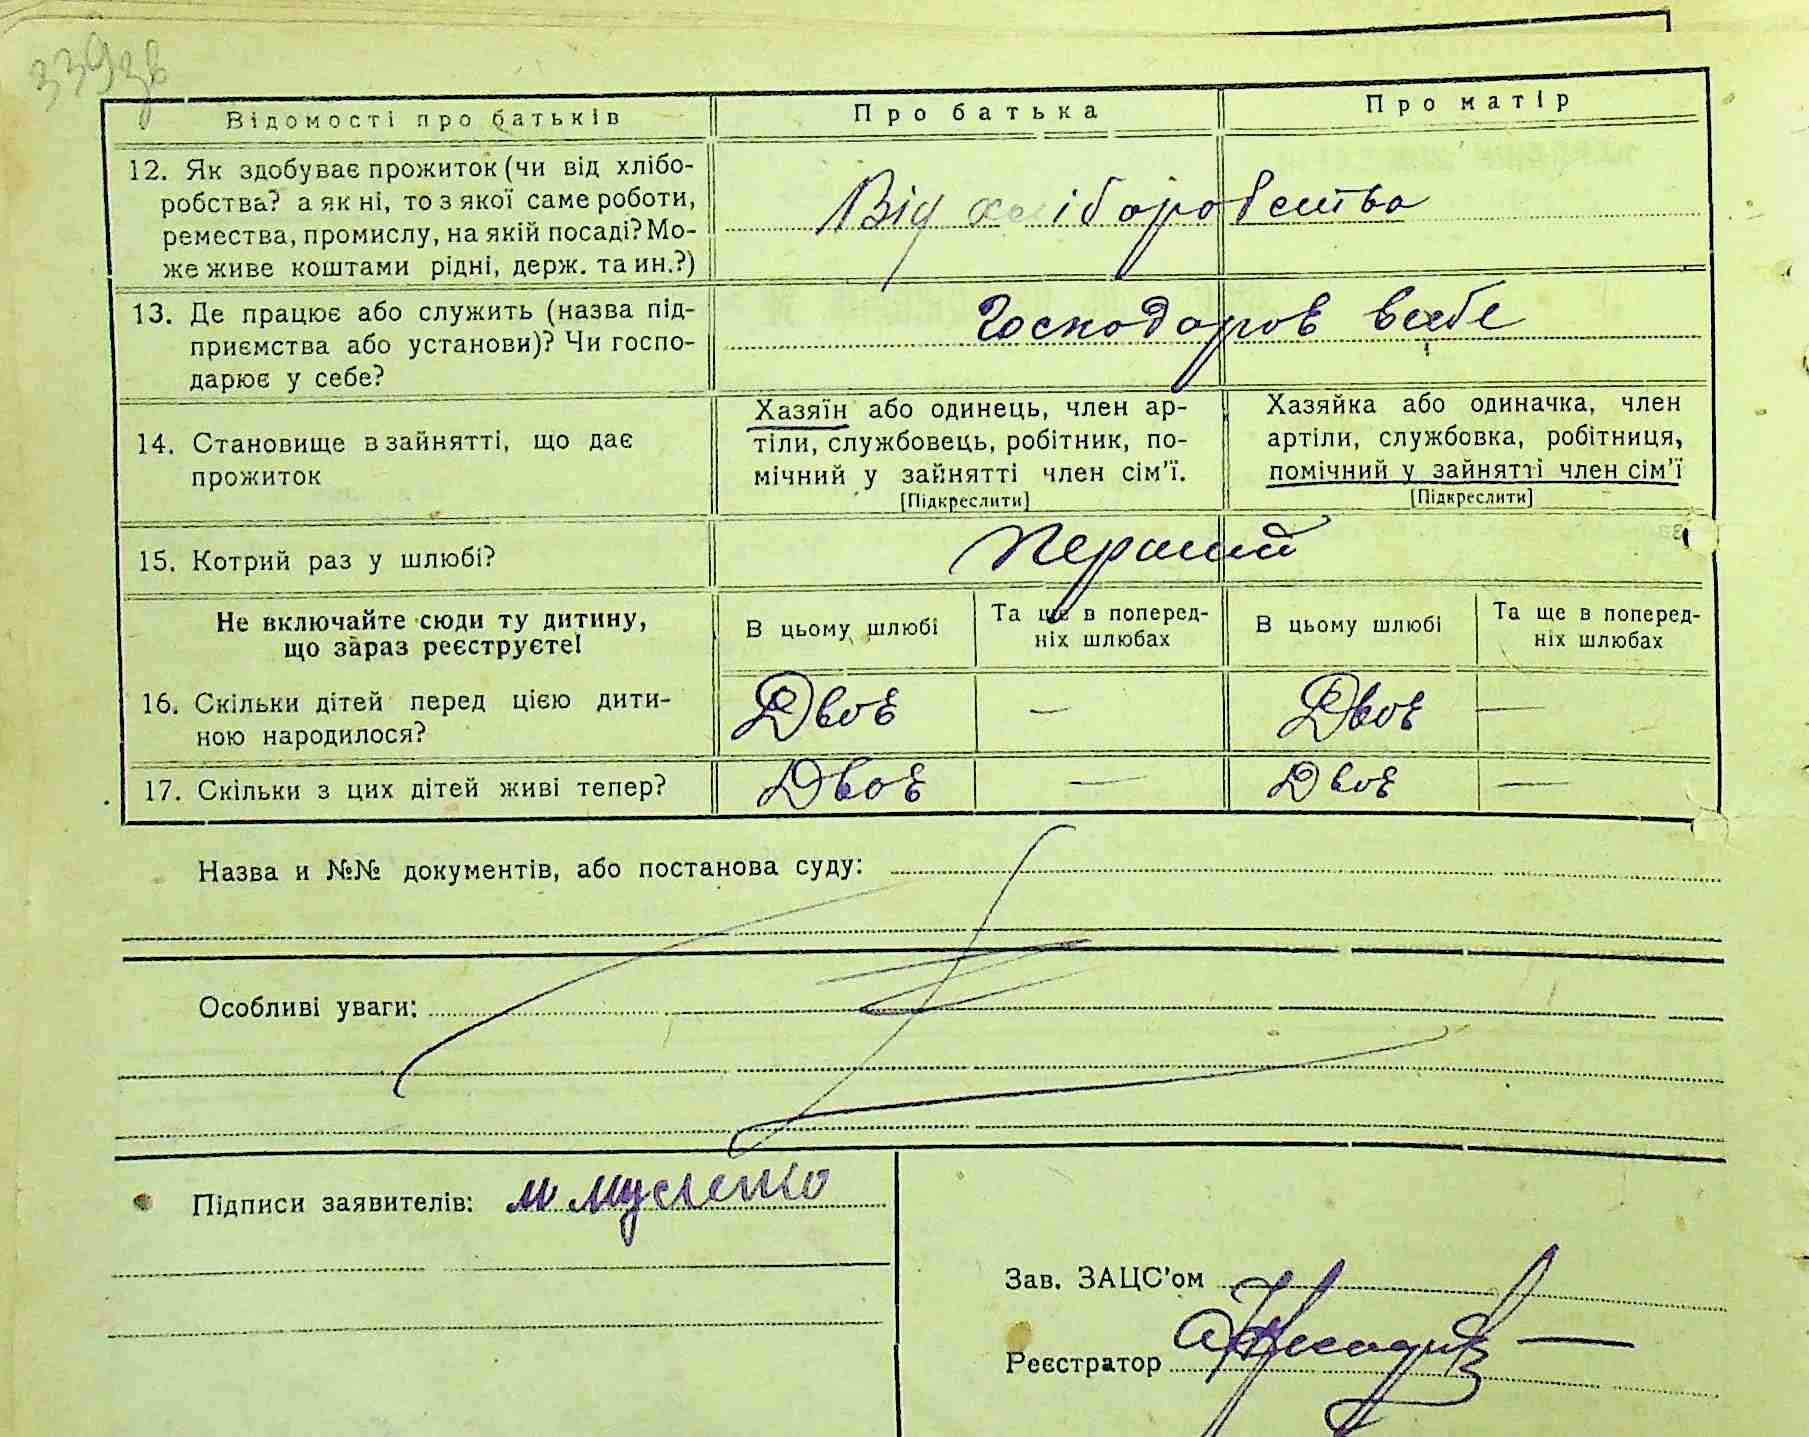 339зв
Відомості про батьків
Про батька
Про матір
12. Як здобуває прожиток (чи від хлібо-
робства? а як ні, то з якої саме роботи,
ремества, промислу, на якій посаді? Мо-
же живе коштами рідні, держ. та ин.?)
Від хліборобства
13. Де працює або служить (назва під-
приємства або установи)? Чи госпо-
дарює у себе?
Господоров всебе
14. Становище в зайнятті, що дає
прожиток
Хазяїн або одинець, член ар-
тіли, службовець, робітник, по-
мічний у зайнятті член сім'ї.
[Підкреслити]
Хазяйка або одиначка, член
артіли, службовка, робітниця,
помічний у зайнятті член сім'ї
[Підкреслити]
15. Котрий раз у шлюбі?
Перший
Не включайте сюди ту дитину,
що зараз реєструєте!
В цьому шлюбі
Та ще в поперед-
ніх шлюбах
В цьому шлюбі
Та ще в поперед-
ніх шлюбах
16. Скільки дітей перед цією дити-
ною народилося?
Двоє — Двоє —
17. Скільки з цих дітей живі тепер?
Двоє — Двоє —
Назва и №№ документів, або постанова суду:
Особливі уваги:
Підписи заявителів: М Мусіенко
Зав. ЗАЦС'ом
Реєстратор